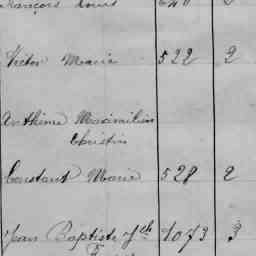 François Louis
Victor Marie 522 2
Anthime Maximilien
Christin
Constant Marie 528 2
Jean Baptiste Jph 1073 3